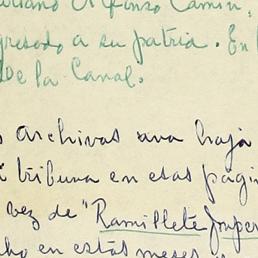 Alfonso Camín,
gresado a su patria. En
De la Canal.
archivas una hoja
tribuna en estas págin
vez de "Ramillete Imper
ho en estos meses